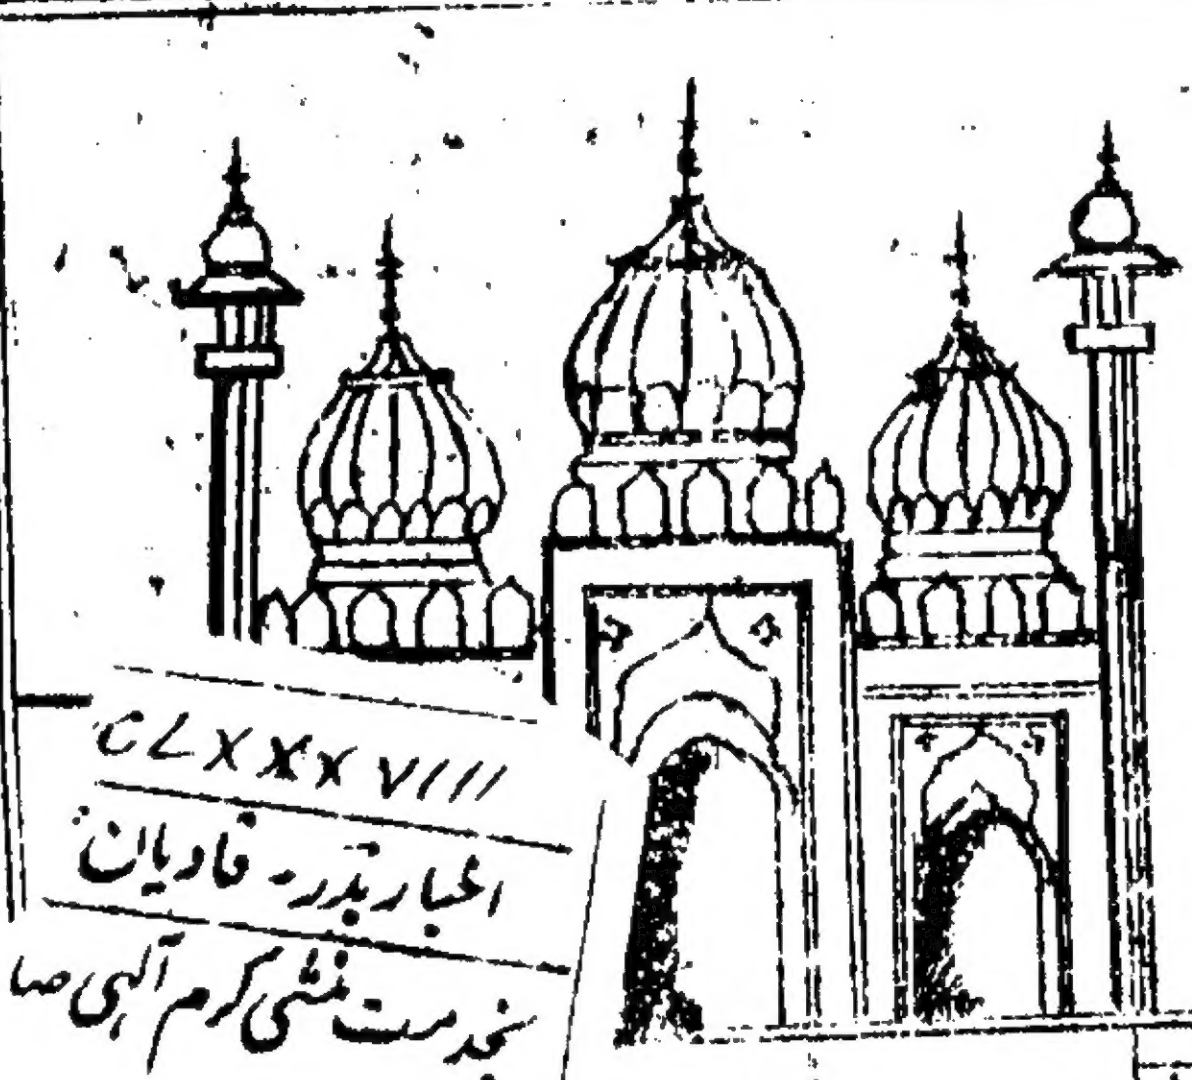 CLXXXVIII
اخبار بدر - قادیان
بخدمت منشی کرم الٰہی صا